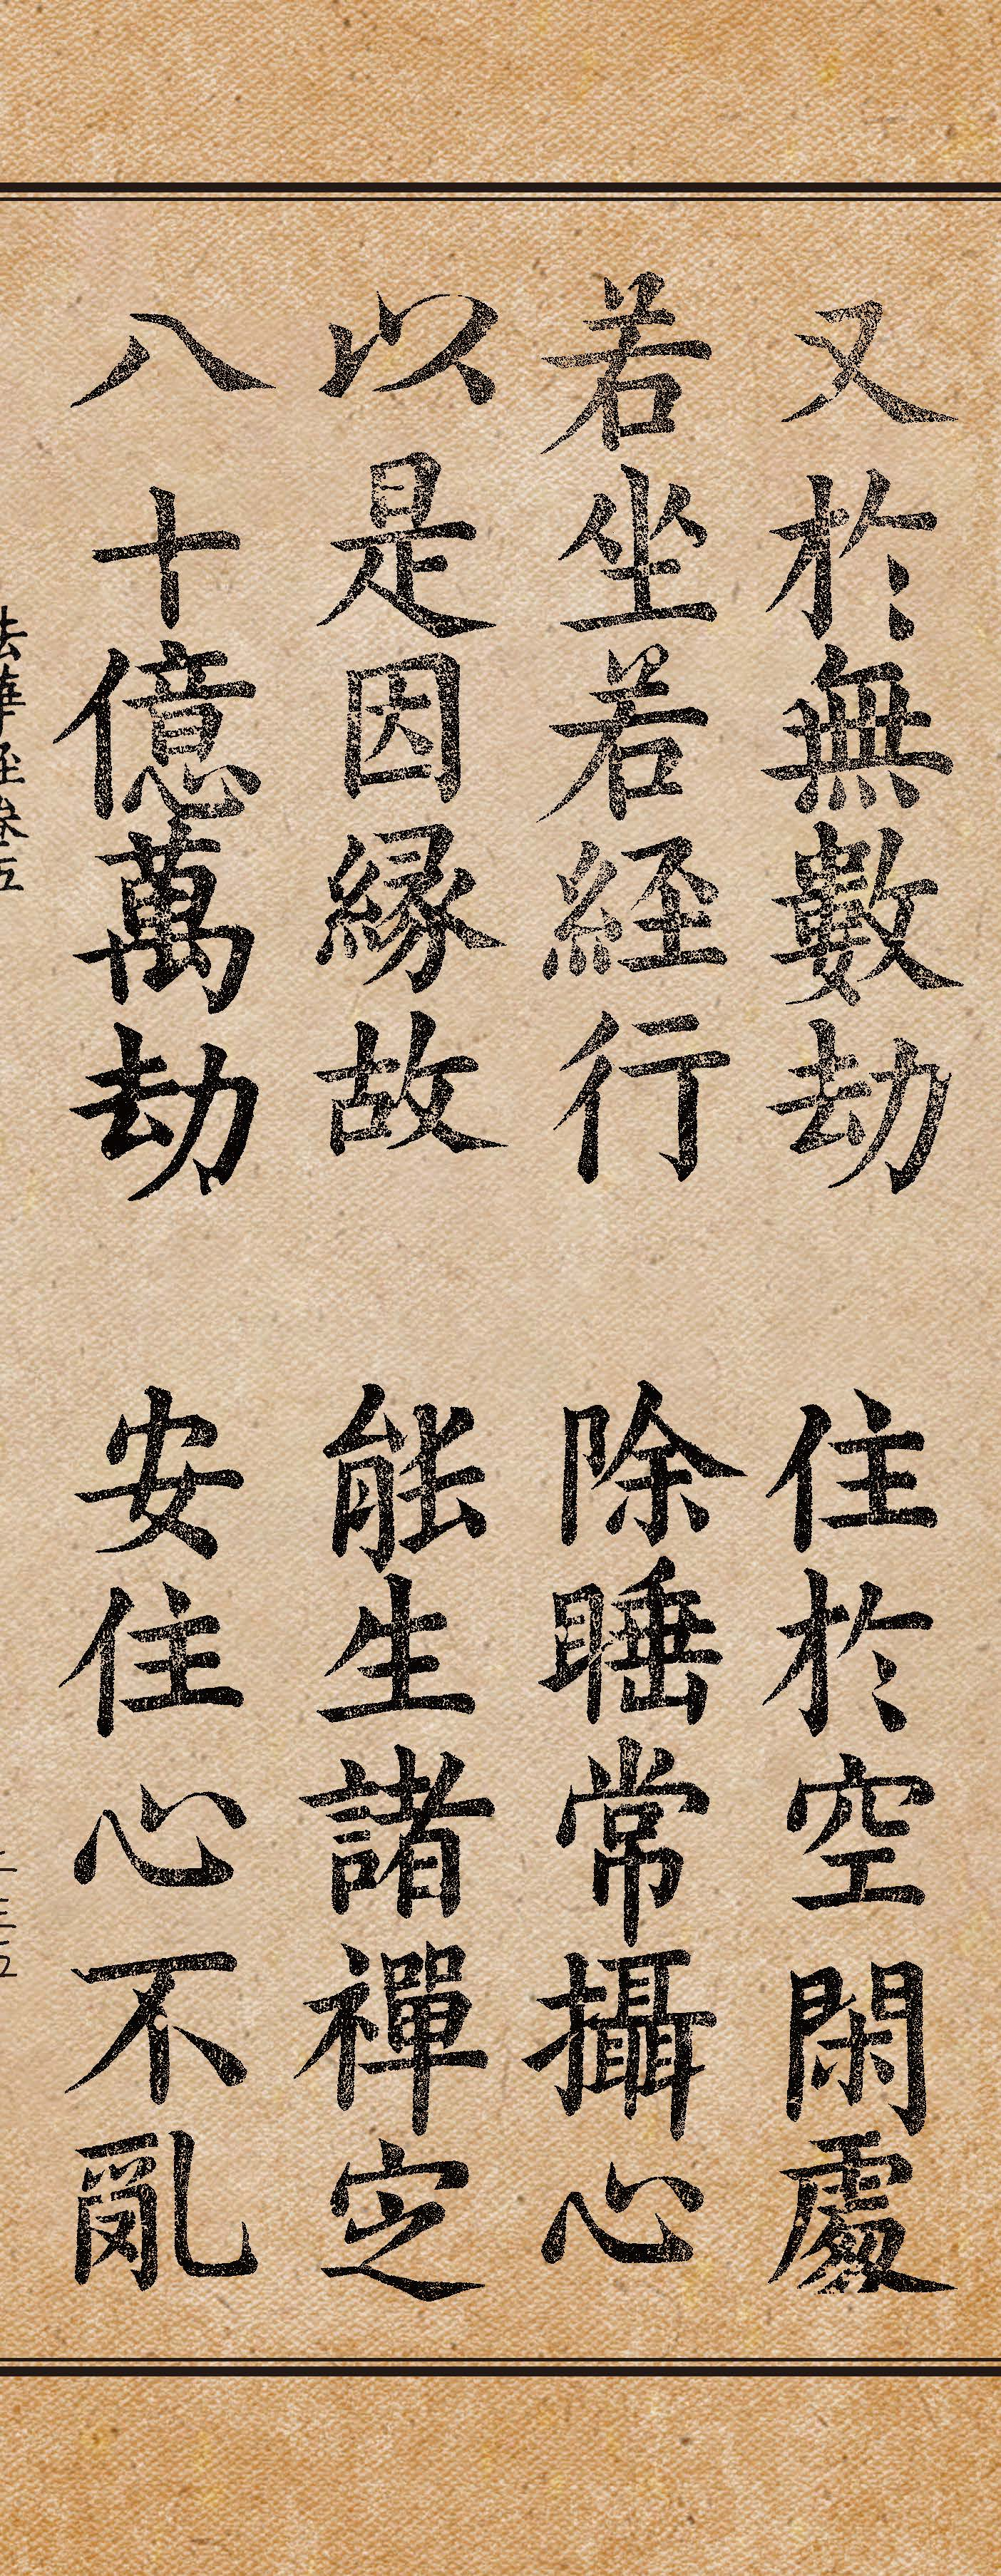 又於無數劫　住於空閑處
若坐若経行　除睡常攝心
以是因縁故　能生諸禪定
八十億萬劫　安住心不亂
法華経巻五
二三五